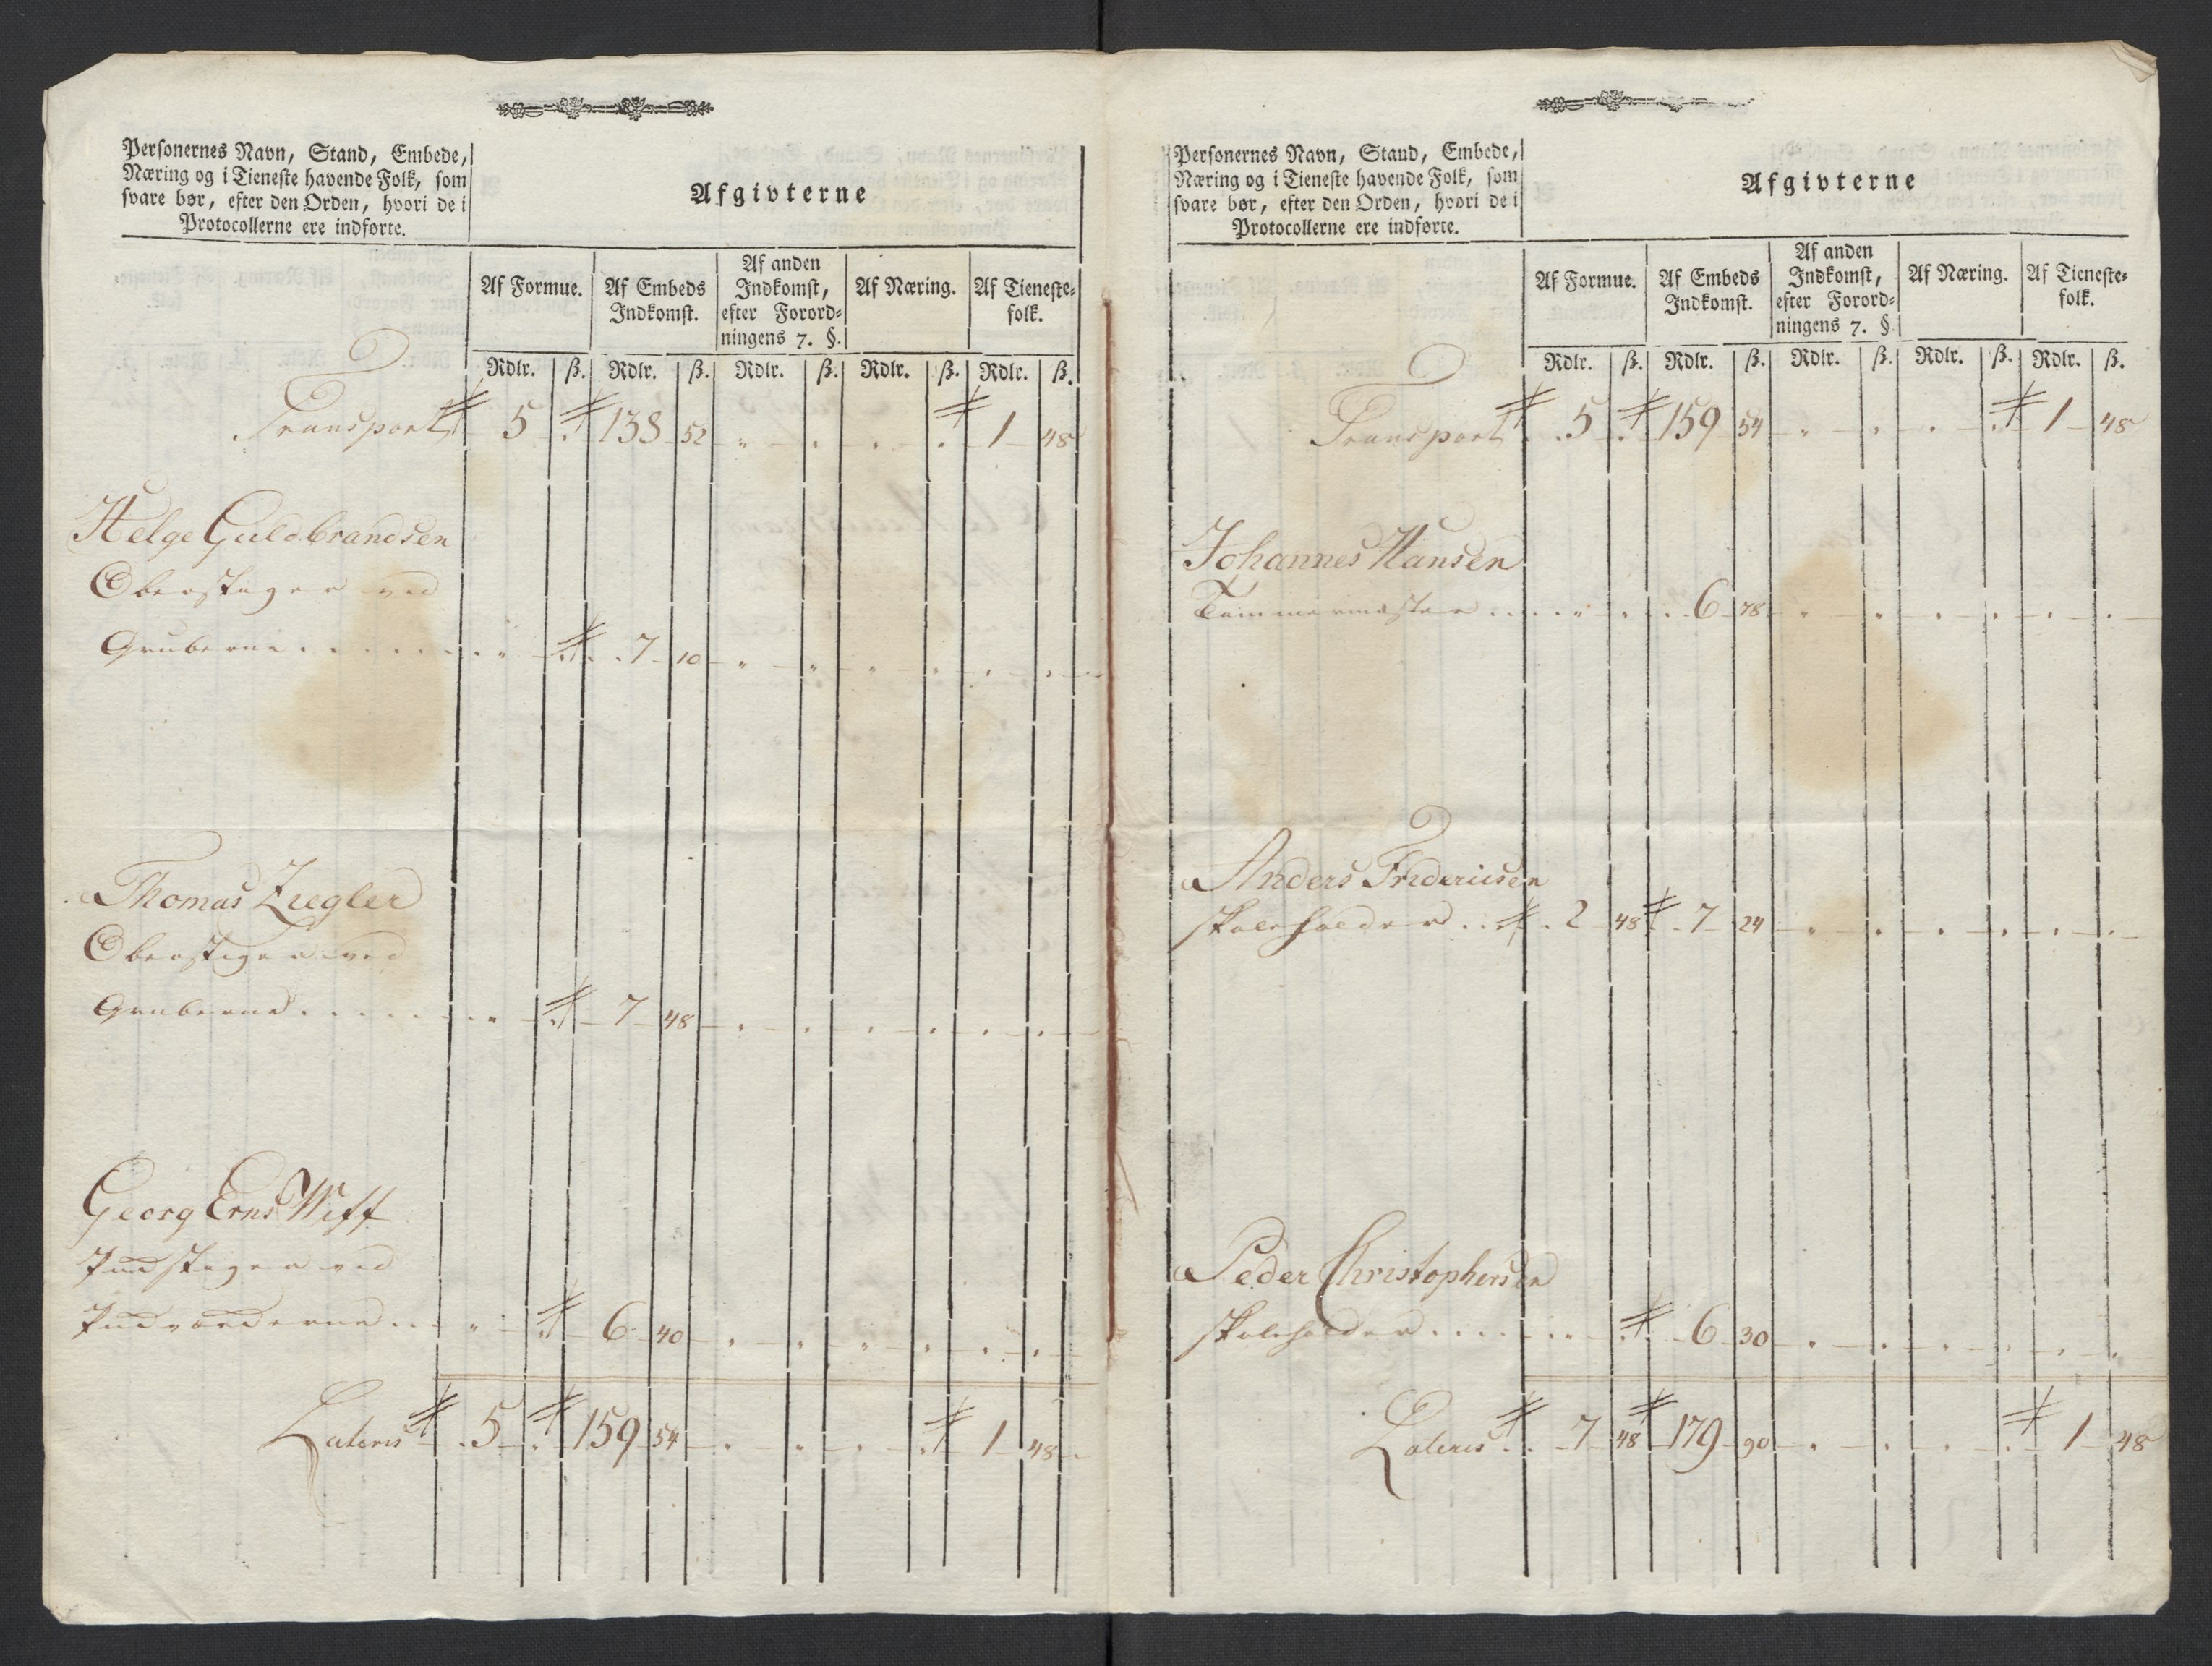 Personernes Navn, Stand, Embede,
Næring og i Tieneste havende Folk, som
svare bør, efter den Orden, hvori de i
Protocollerne ere indførte.
Afgivterne
Af Formue. Af Embeds Indkomst. Af anden Indkomst, efter Forordningens 7. §. Af Næring. Af Tienestefolk.
Rdlr. ß. Rdlr. ß. Rdlr. ß. Rdlr. ß. Rdlr. ß.
Transport 5 138 52 1 48
Helge Guldbrandsen
Oberstiger ved
Gruberne 7 10
Thomas Ziegler
Oberstiger ved
Gruberne 7 48
Georg Erns Wiff
stiger ved
6 40
Lateris 5 159 54 1 48
Personernes Navn, Stand, Embede,
Næring og i Tieneste havende Folk, som
svare bør, efter den Orden, hvori de i
Protocollerne ere indførte.
Afgivterne
Af Formue. Af Embeds Indkomst. Af anden Indkomst, efter Forordningens 7. §. Af Næring. Af Tienestefolk.
Rdlr. ß. Rdlr. ß. Rdlr. ß. Rdlr. ß. Rdlr. ß.
Transport 5 159 54 1 48
Johannes Hansen
Tømmermester 6 78
Anders Fridericsen
skoleholder 2 48 7 24
Peder Christophersen
skoleholder 6 30
Lateris 7 48 179 90 1 48